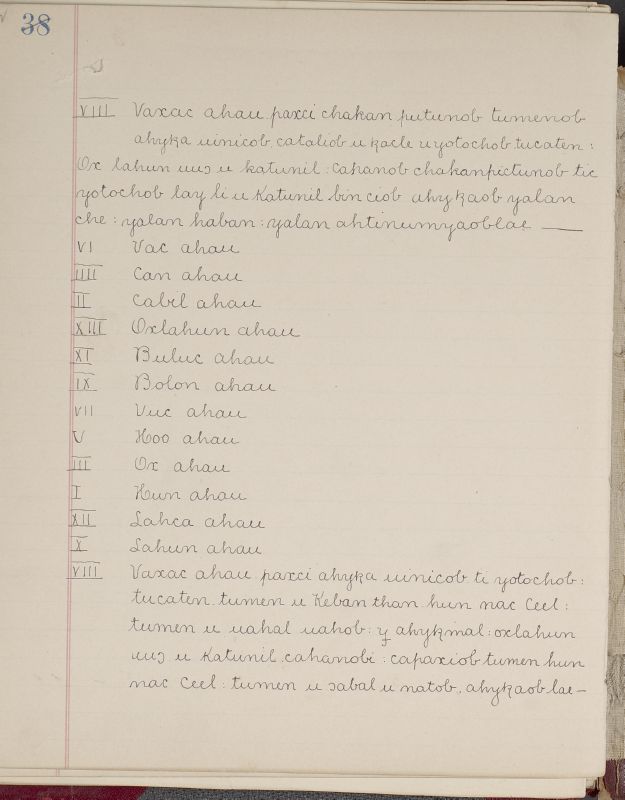 38
VIII Vaxac ahau paxci chakan putunob tumenob
ahyꜩa uinicob, cataliob u ꜩacle u yotochob tucaten:
Ox lahun uuɔ u katunil: cahanob chakanpictunob tic
yotochob lay li u Katunil bin ciob ahyꜩaob yalan
che: yalan haban: yalan ahtinumyaoblae —
VI Vac ahau
IIII Can ahau
II Cabil ahau
XIII Oxlahun ahau
XI Buluc ahau
IX Bolon ahau
VII Vuc ahau
V Hoo ahau
III Ox ahau
I Hun ahau
XII Lahca ahau
X Lahun ahau
VIII Vaxac ahau paxci ahyꜩa uinicob ti yotochob:
tucaten tumen u Keban than hun nac Ceel:
tumen u uahal uahob: y ahyꜩmal: oxlahun
uuɔ u Katunil cahanobi: capaxiob tumen hun
nac Ceel: tumen u ɔabal u natob, ahyꜩaob lae —